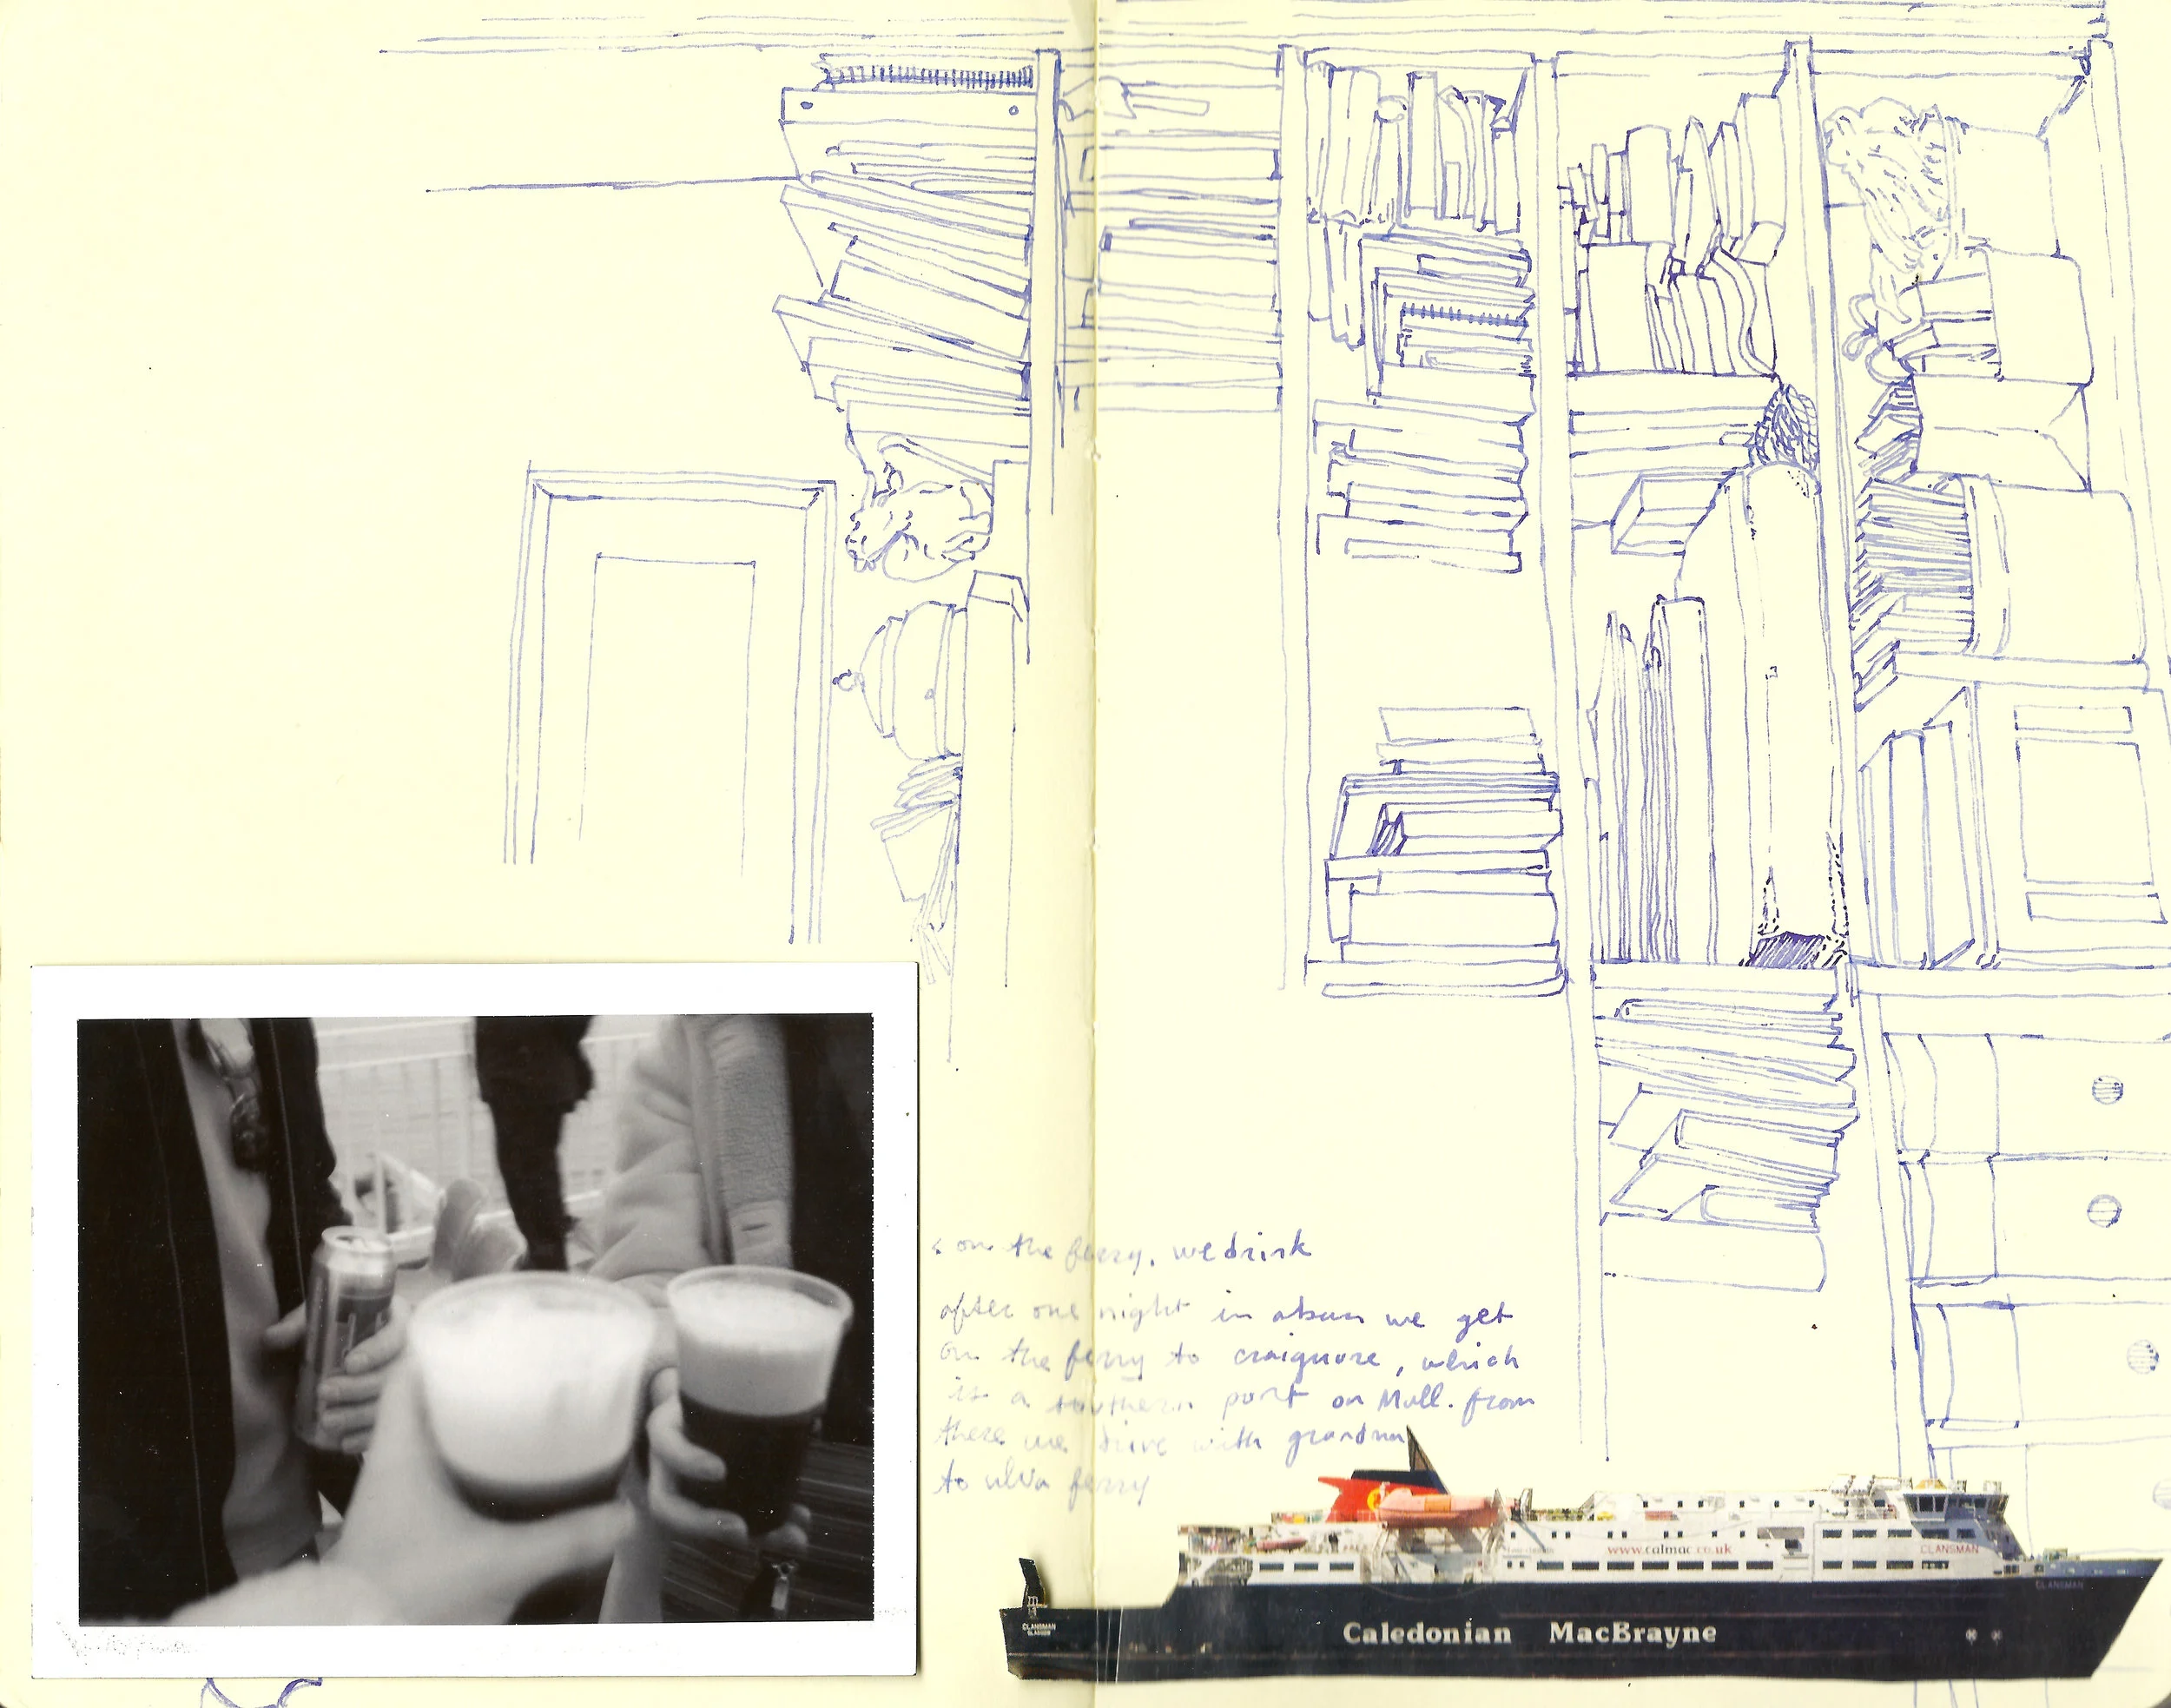 < on the ferry. we drink
after one night in oban we get
on the ferry to craignure, which
is a southern port on Mull. from
there we drive with grandma
to ulva ferry
www.calmac.co.uk
CLANSMAN
CLANSMAN
CLANSMAN
Caledonian MacBrayne